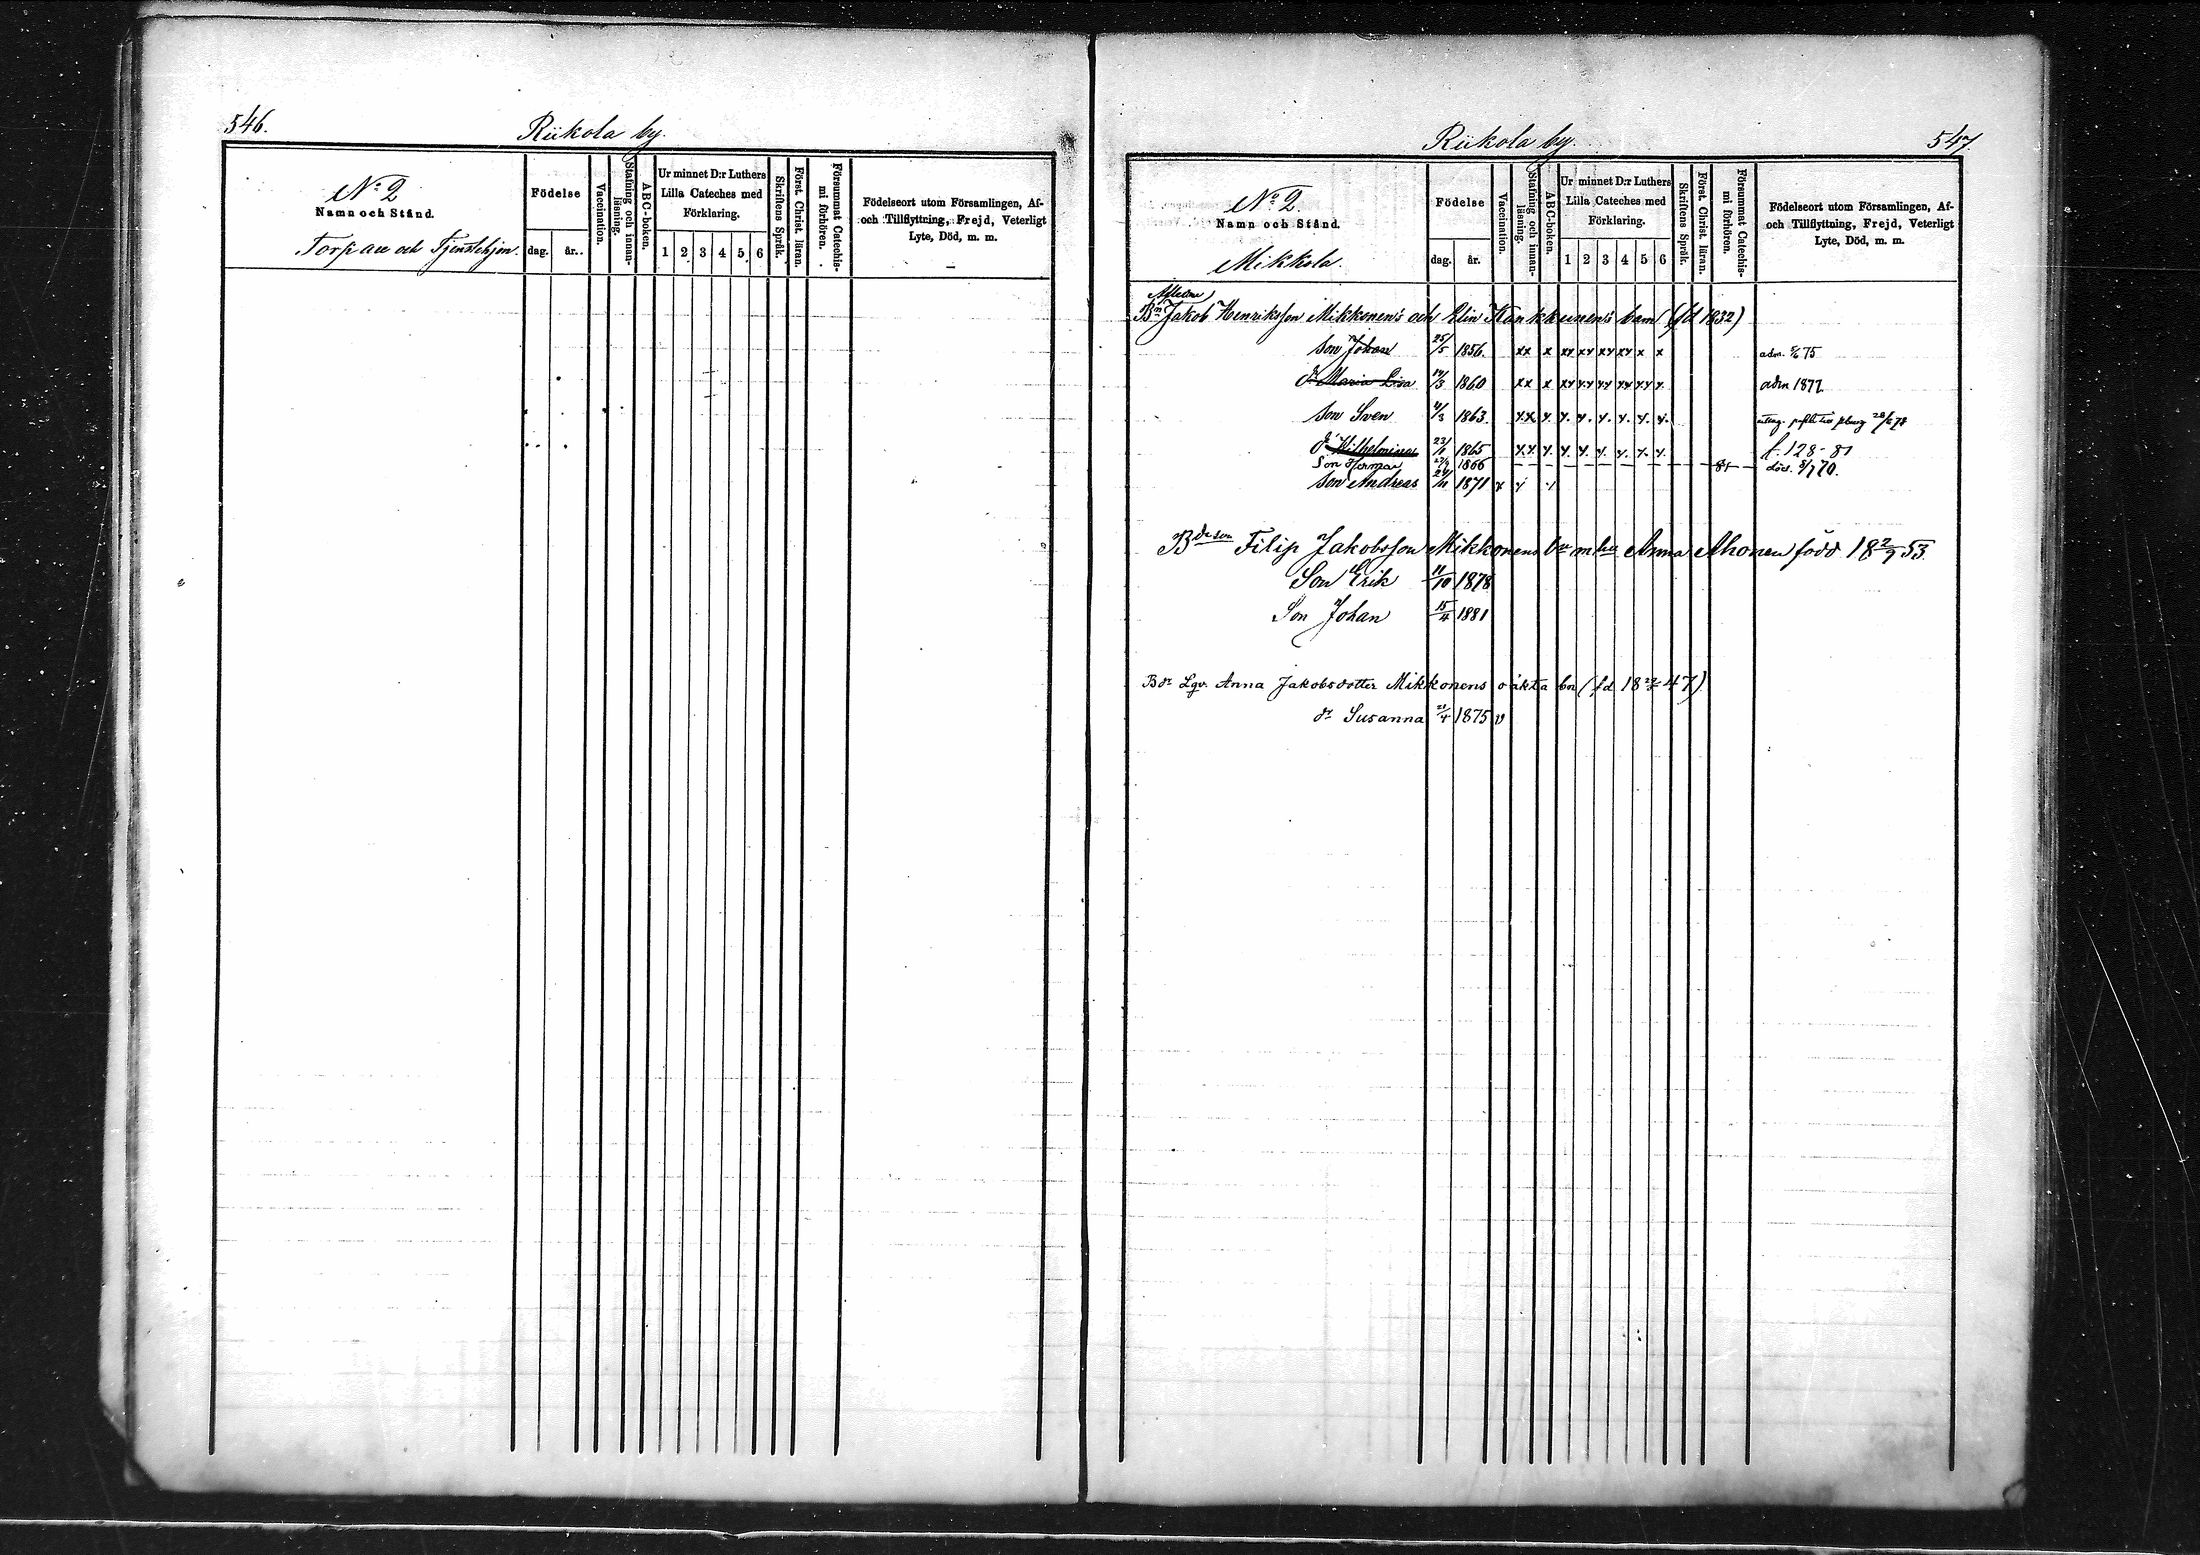 546.
Riikola by.
Nº 2
Namn och Stånd.
Torpare och Tjenstehjon.
Födelse
dag.
år.
Vaccination.
Stafning och innan-
läsning.
ABC-boken.
Ur minnet D:r Luthers
Lilla Cateches med
Förklaring.
1 2 3 4 5 6
Skriftens Språk.
Först. Christ. läran.
Försummat Catechis-
mi förhören.
Födelseort utom Församlingen, Af-
och Tillflyttning, Frejd, Veterligt
Lyte, Död, m. m.
Riikola by.
547.
Nº 2.
Namn och Stånd.
Mikkola.
Födelse
dag.
år.
Vaccination.
Stafning och innan-
läsning.
ABC-boken.
Ur minnet D:r Luthers
Lilla Cateches med
Förklaring.
1 2 3 4 5 6
Skriftens Språk.
Först. Christ. läran.
Försummat Catechis-
mi förhören.
Födelseort utom Församlingen, Af-
och Tillflyttning, Frejd, Veterligt
Lyte, Död, m. m.
Aflidne
Bn Jakob Henriksson Mikkonen's och Elin Kankkunen's barn (fd 1832)
son Johan 25/5 1856. xx x xx xx xx xx x x adm. 75
dr Maria Lisa 1860 xx x xx xx xx xx xx x adm 1877
son Sven 11/3 1863. x.x x. x. x. x. x. x. x.
dr Wilhelmina 1865 x.x x. x. x. x. x. x. x. f. 128-81
Son Herman 1866 död. 70.
son Andreas 1871 x x x
Bdeson Filip Jakobsson Mikkonens bn m hu Anna Ahonen född 18 2/9 53.
Son Erik 11/10 1878
Son Johan 15/4 1881
Bdr Lgv. Anna Jakobsdotter Mikkonens oäkta bn (fd 18 47)
dr Susanna 21/4 1875 v